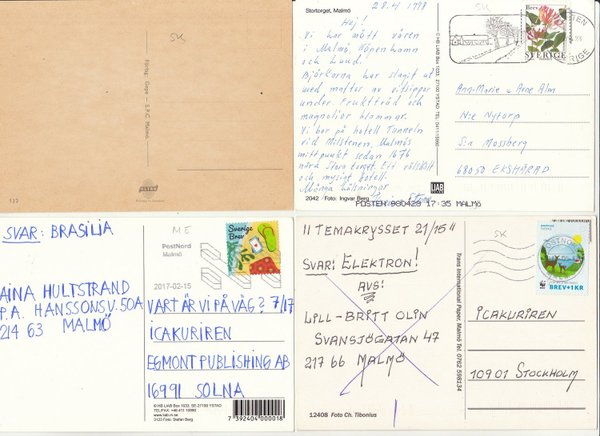 SK
Förlag: Gepe - S.P.C. Malmö
133
Stortorget, Malmö
28.4 1998
SK
Hej!
Vi har mött våren
i Malmö, Köpenhamn
och Lund.
Björkarna har slagit ut
med mattor av vitsippor
under. Fruktträd och
magnolior blommar.
Vi bor på hotell Tunneln
vid Millstenen, Malmös
mittpunkt sedan 1676
nära Stora torget. Ett välskött
och mysigt hotell.
Många hälsningar
SVERIGE
Ann-Marie o Arne Alm
N:e Nytorp
S:a Mossberg
68050 EKSHÄRAD
LIAB
2042 / Foto: Ingvar Berg
POSTEN 980429 17:35 MALMÖ
SVAR: BRASILIA
ME
PostNord
Malmö
2017-02-15
Sverige
Brev
AINA HULTSTRAND
P.A. HANSSONSV. 50A
214 63 MALMÖ
VART ÄR VI PÅ VÄG? 7/17
ICAKURIREN
EGMONT PUBLISHING AB
16991 SOLNA
7 392404 000018
II TEMAKRYSSET 21/15 II
SK
SVAR: ELEKTRON!
AVS:
LILL-BRITT OLIN
SVANSJÖGATAN 47
217 66 MALMÖ
Trans International Paper, Malmö Tel. 0762 598134
BREV+1KR
ICAKURIREN
10901 STOCKHOLM
12408 Foto Ch. Tibonius